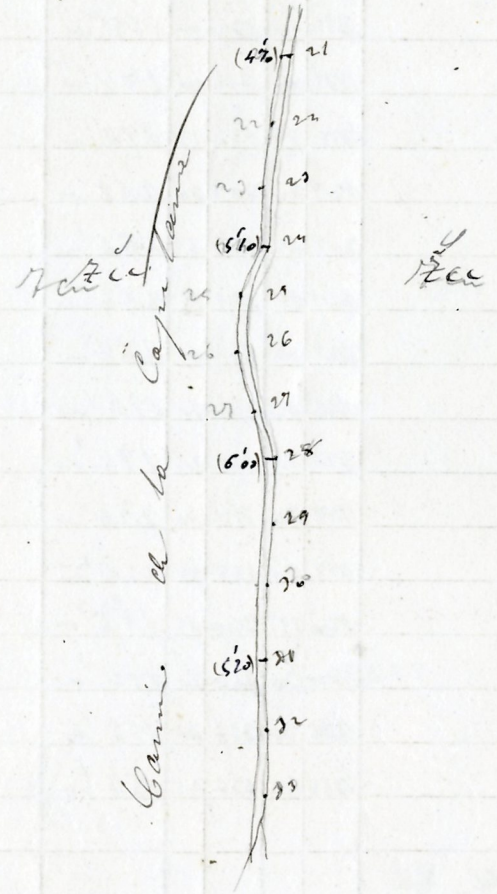 (4'70) 21
22 22
23 23
(5'10) 24
25 25
26 26
27 27
(6'00) 28
29
30
(5'20) 31
32
33
Camí de la